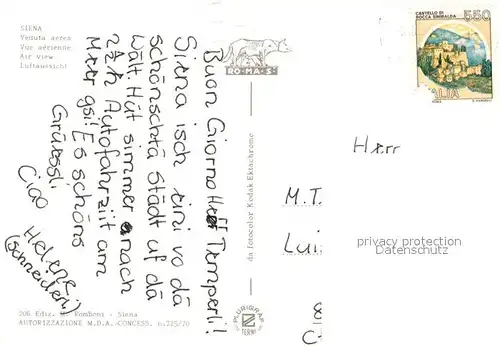 SIENA
Veduta aerea
Vue aérienne
Air view
Luftaussicht
RO·MA·S
Buon Giorno Herr Tämperli!
Siena isch eini vo dä
schönschtä Städt uf dä
Wält. Hüt simmer nach
2½h Autofahrziit am
Meer gsi! Es schöns
Grüessli
Ciao
Helene
(Schneider!)
da fotocolor Kodak Ektachrome
206 Ediz. Romboni - Siena
AUTORIZZAZIONE M.D.A.-CONCESS. n.725/70
PLURIGRAF
TERNI
CASTELLO DI
ROCCA SINIBALDA
550
ITALIA
Herr
M.T.
Lui
8
C-
privacy protection
Datenschutz